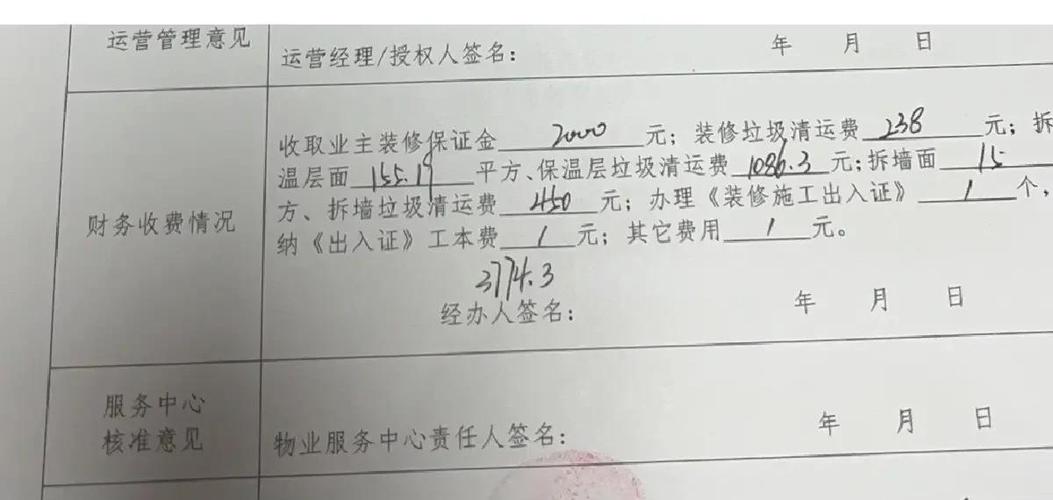 运营管理意见
运营经理/授权人签名： 年 月 日
财务收费情况
收取业主装修保证金 2000 元；装修垃圾清运费 238 元；拆
温层面 155.19 平方、保温层垃圾清运费 1086.3 元；拆墙面 15
方、拆墙垃圾清运费 450 元；办理《装修施工出入证》 / 个，
纳《出入证》工本费 / 元；其它费用 / 元。
3774.3
经办人签名： 年 月 日
服务中心
核准意见
物业服务中心责任人签名： 年 月 日